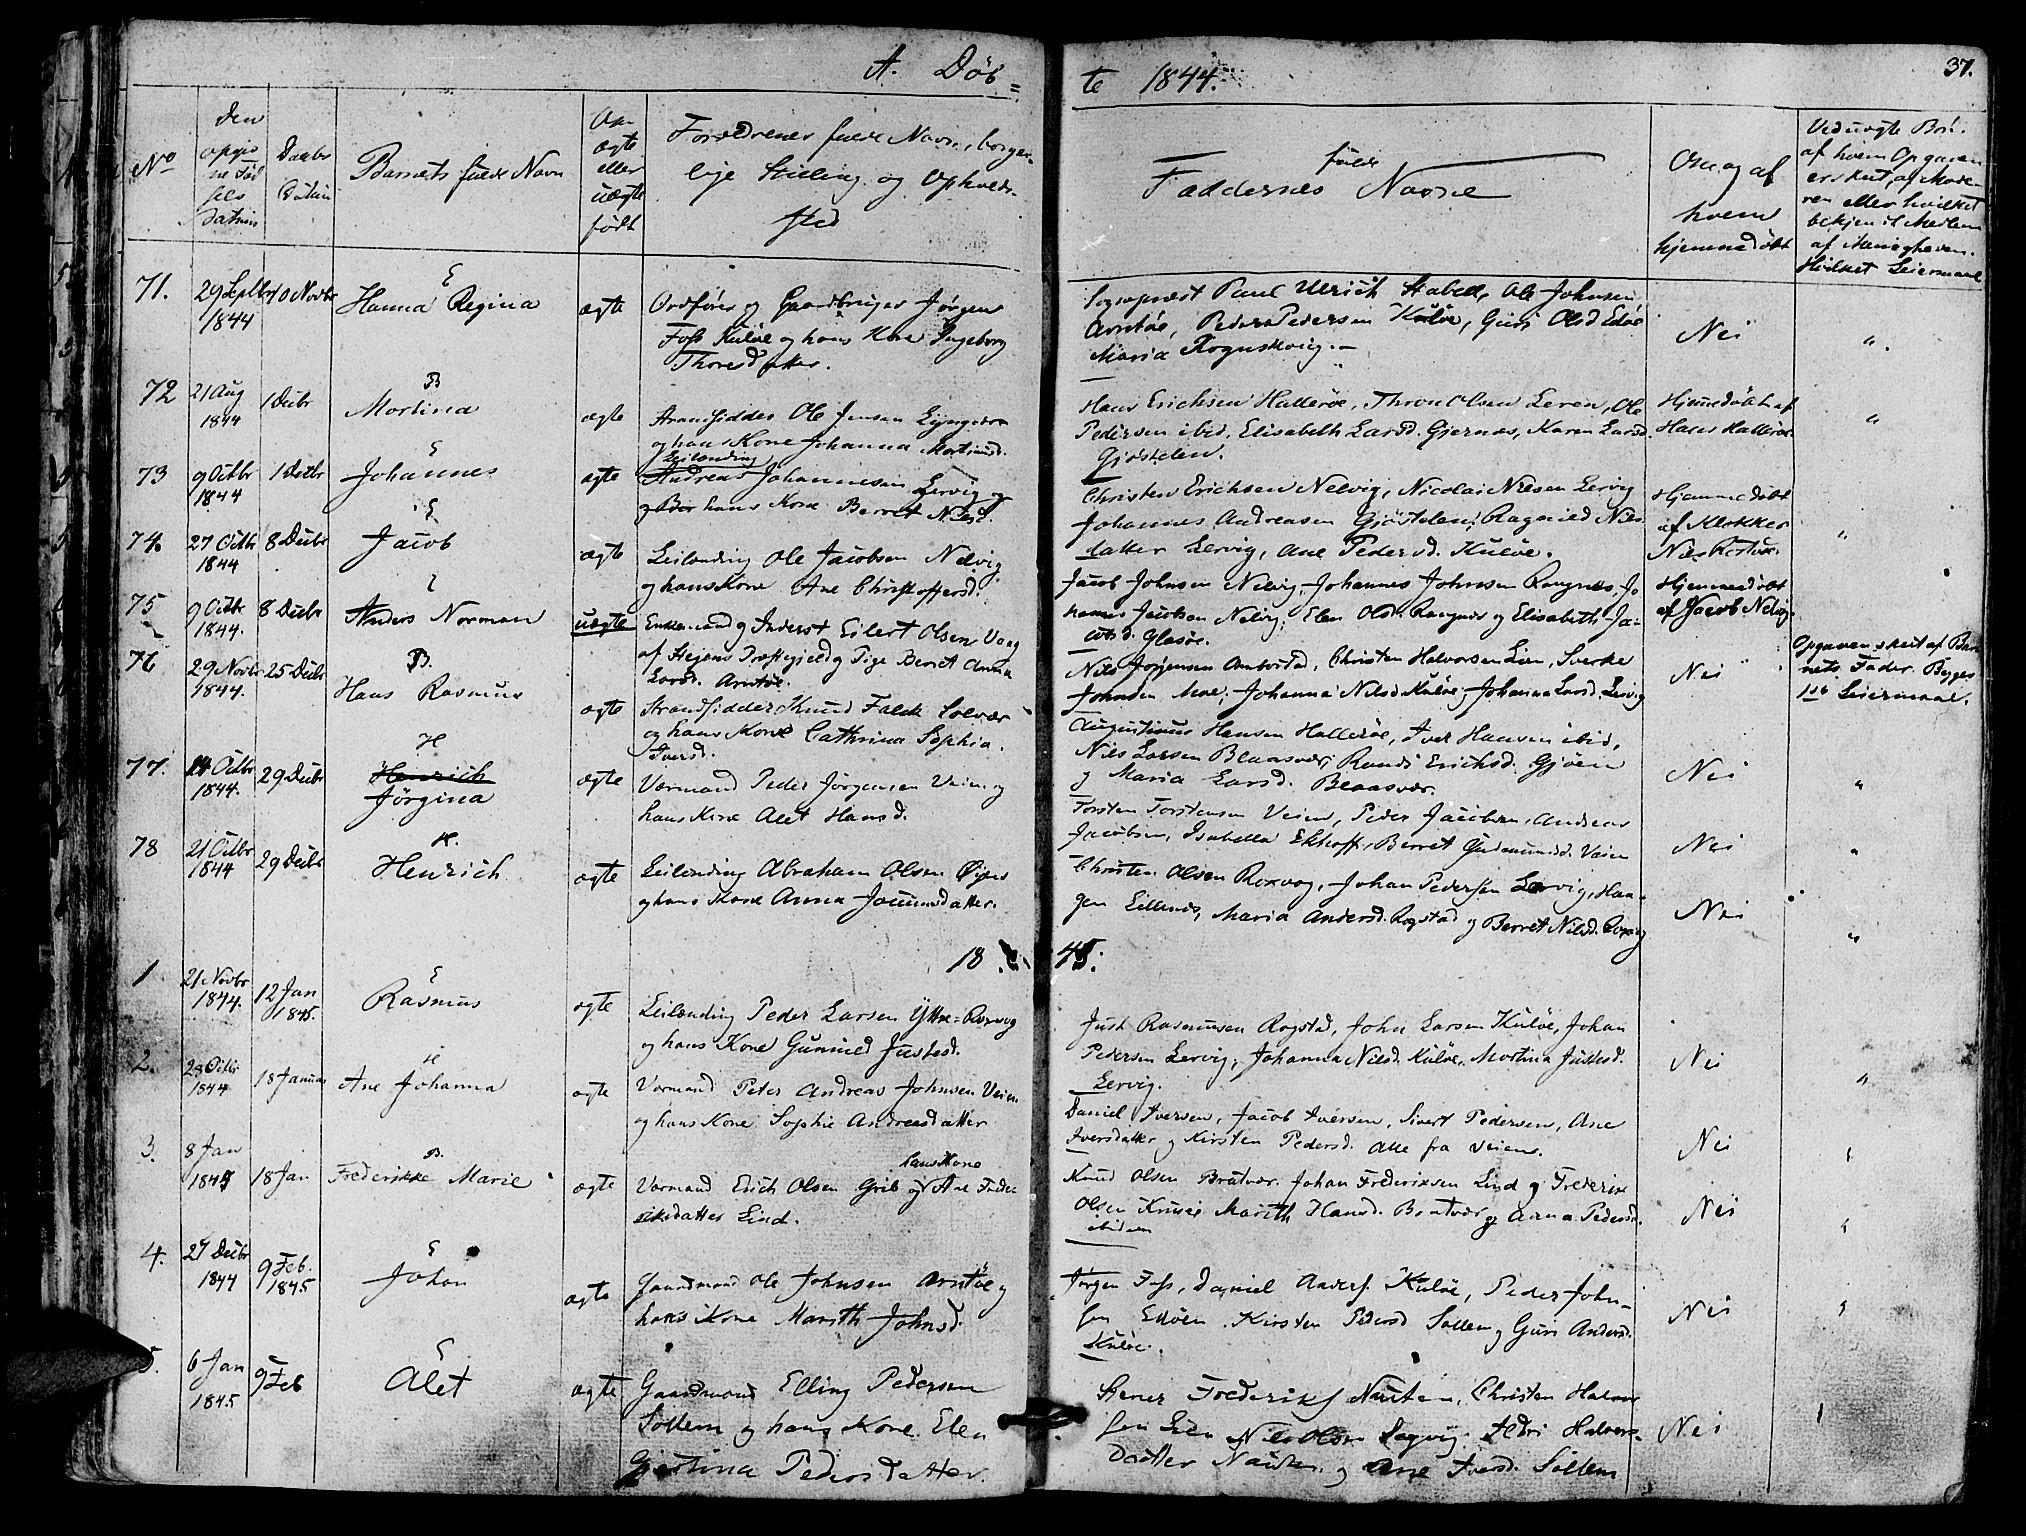 A. Døb=
te 1844.
37.
No
den
Daabs
Datum
Barnets fulde Navn
Om
ægte
eller
uægte
født
Forældrenes fulde Navn, borger-
lige Stilling og Opholds-
sted
Faddernes fulde Navne
Om og af
hvem
hjemmedøbt
71.
29 Septbr
1844
10 Novbr
E
Hanna Regina
ægte
Ordfører og Gaardbruger Jørgen
Foss Kuløe og hans Kone Ingeborg
Thoresdatter.
Sognepræst Paul Ulrich Stabell, Ole Johnsen
Arntøe, Peder Pedersen Kuløe, Guri Olsd Edøe
Maria Rognskoug.
Nei
"
72
21 Aug
1844
1 Decbr
B
Martina
ægte
Strandsidder Ole Jensen Lyngvær
og hans Kone Johanna Martinusd.
Hans Erichsen Hallerøe, Thron Olsen Leren, Ole
Pedersen ibid, Elisabeth Larsd. Gjernes, Karen Larsd.
Gjøstelen.
Hjemmedøbt af
Hans Hallerøe
"
73
9 Octbr
1844
1 Decbr
E
Johannes
ægte
Leilænding
Andreas Johannesen Lervig og
hans Kone Berret Nilsd.
Christen Erichsen Nelvig, Nicolai Nilsen Lervig
Johannes Andreasen Gjøstelen, Ragnild Nils
datter Lervig, Ane Pedersd. Kuløe.
Hjemmedøbt
af Klokker
"
74.
27 Octbr
1844
8 Decbr
E
Jacob
ægte
Leilænding Ole Jacobsen Nelvig
og hans Kone Ane Christoffersd.
Jacob Johnsen Nelvig, Johannes Johnsen Rangnes, Jo
hannes Jacobsen Nelvig, Elen Olsd. Rangnes og Elisabeth Ja-
cobsd. Glasøe.
Hjemmedøbt
af Jacob Nelvig
75
9 Octbr
1844.
8 Decbr
Anders Norman
uægte
Enkemand og Inderst Eilert Olsen Vaag
af Stejens Præstegjeld og Pige Berret Anna
Larsd. Arntøe.
Nils Jørgensen Ombostad, Christen Halvorsen Lien, Sverke
Johnsen Moe, Johanna Nilsd Kuløe, Johanna Larsd. Lervig
Nei
Opgaven skeet af Bar
nets Fader. Begges
1ste Leiermaal.
76
29 Novbr
1844.
25 Decbr
B.
Hans Rasmus
ægte
Strandsidder Knud Falck Solvær
og hans Kone Cathrina Sophia
Iversd.
Augustinus Hansen Hallerøe, Iver Hansen ibid,
Nils Larsen Blaasvær, Randi Erichsd. Gjøen
og Maria Larsd. Blaasvær.
Nei
"
77.
14 Octbr
1844.
29 Decbr
H
Henrich
Jørgina
ægte
Værmand Peder Jørgensen Veien og
hans Kone Alet Hansd.
Torsten Torstensen Veien, Peder Jacobsen, Andreas
Jacobsen, Isabella Ekhoff, Berret Gudmundsd. Veien
Nei
"
78
21 Octbr
1844
29 Decbr
H.
Henrich
ægte
Leilænding Abraham Olsen Øines
og hans Kone Anna Jocumsdatter.
Christen Olsen Roxvog, Johan Pedersen Lervig, Haa-
gen Lillenes, Maria Andersd. Rogstad og Berret Nilsd. Roxvog
Nei
"
18 45.
1
21 Novbr
1844.
12 Jan
1845.
E
Rasmus
ægte
Leilænding Peder Larsen Yttre-Roxvog
og hans Kone Gunnild Justesd.
Just Rasmussen Rogstad, John Larsen Kuløe, Johan
Pedersen Lervig, Johanna Nilsd. Kuløe, Martina Justesd.
Lervig.
Nei
"
2.
28 Octbr
1844
18 Januar
H
Ane Johanna
ægte
Værmand Peter Andreas Johnsen Veien
og hans Kone Sophie Andreasdatter
Daniel Iversen, Jacob Iversen, Sivert Pedersen, Ane
Iversdatter og Kirsten Pedersd. Alle fra Veien.
Nei
"
3.
8 Jan
1845
18 Jan
B.
Frederikke Marie
ægte
hans Kone
Værmand Erich Olsen Grib og Ane Frede
riksdatter Lind.
Knud Olsen Bratvær, Johan Frederiksen Lind og Frederik
Olsen Marith Hansd. Bratvær og Anna Pedersd.
ibidem
Nei
"
4.
27 Decbr
1844
9 Feb.
1845
E
Johan
ægte
Gaardmand Ole Johnsen Arntøe og
hans Kone Marith Johnsd.
Jørgen Foss, Daniel Anders. Kuløe, Peder John-
sen Edøen, Kirsten Pedersd Sollem og Guri Andersd.
Kuløe.
Nei
"
5.
6 Jan
1845
9 Feb
E
Alet
ægte
Gaardmand Elling Pedersen
Sollem og hans Kone Elen
Gjertina Pedersdatter.
Stener Frederiks Nauten, Christen Halvor
sen Lien Nils Olsen Sagvig. Halvors-
Datter Nauten og Ane Iversd. Sollem
Nei